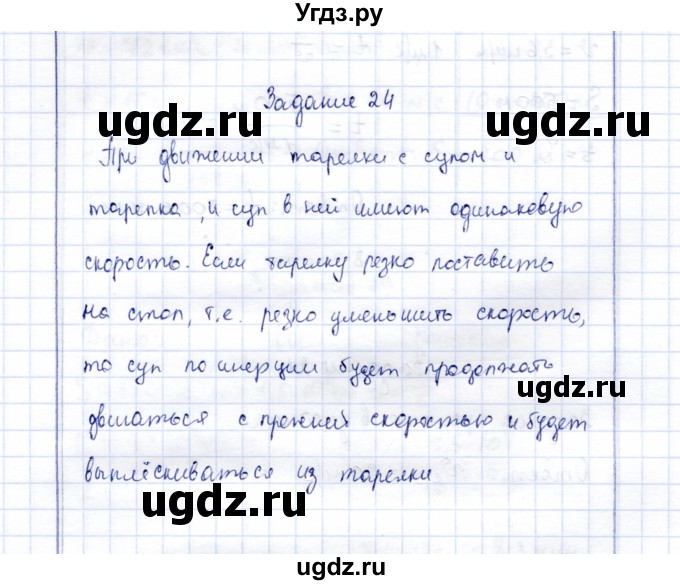 Угдз.ру
Задание 24
ugdz.ru
ugdz.ru
При движении тарелки с супом и
тарелка, и суп в ней имеют одинаковую
скорость. Если тарелку резко поставить
на стол, т.е. резко уменьшить скорость,
то суп по инерции будет продолжать
ugdz.ru
двигаться с прежней скоростью и будет
выплёскиваться из тарелки
ugdz.ru
ugdz.ru